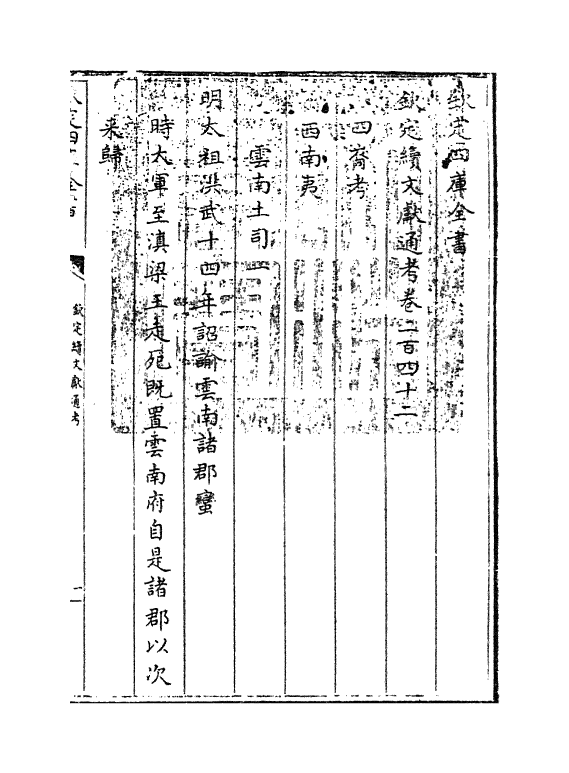 欽定四庫全書
欽定續文獻通考卷二百四十二
四裔考
西南夷
雲南土司一
明太祖洪武十四年詔諭雲南諸郡蠻
時大軍至滇梁王走死既置雲南府自是諸郡以次
来歸
欽定續文獻通考